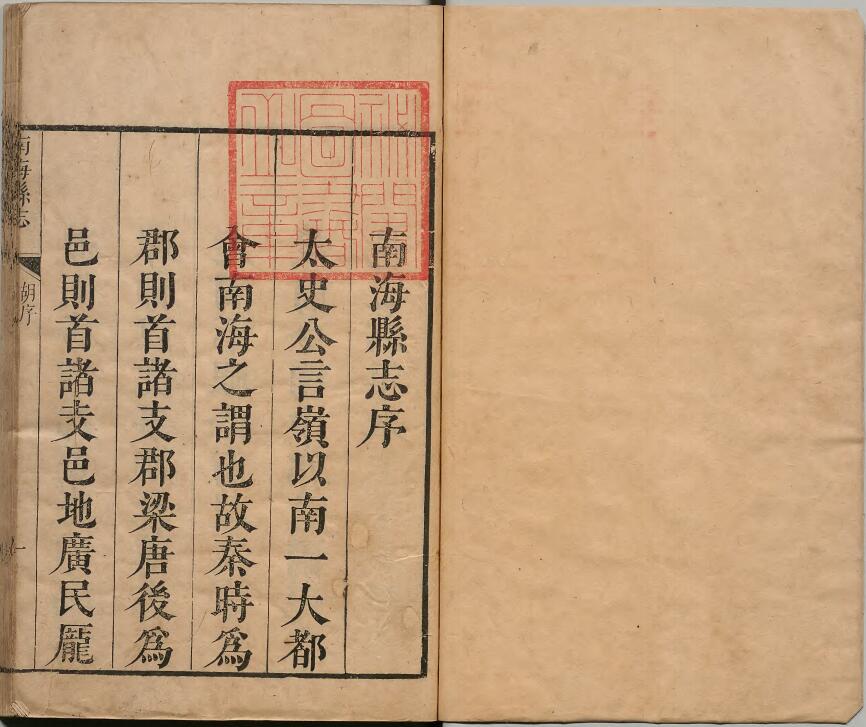 南海縣志序
太史公言嶺以南一大都
會南海之謂也故秦時為
郡則首諸支郡梁唐後為
邑則首諸支邑地廣民厖
南海縣志
胡序
一